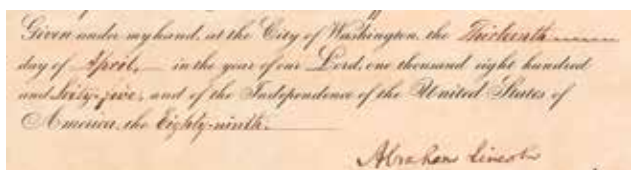 Given under my hand, at the City of Washington, the Thirteenth
day of April, in the year of our Lord, one thousand eight hundred
and sixty-five, and of the Independence of the United States of
America, the Eighty-ninth.
Abraham Lincoln